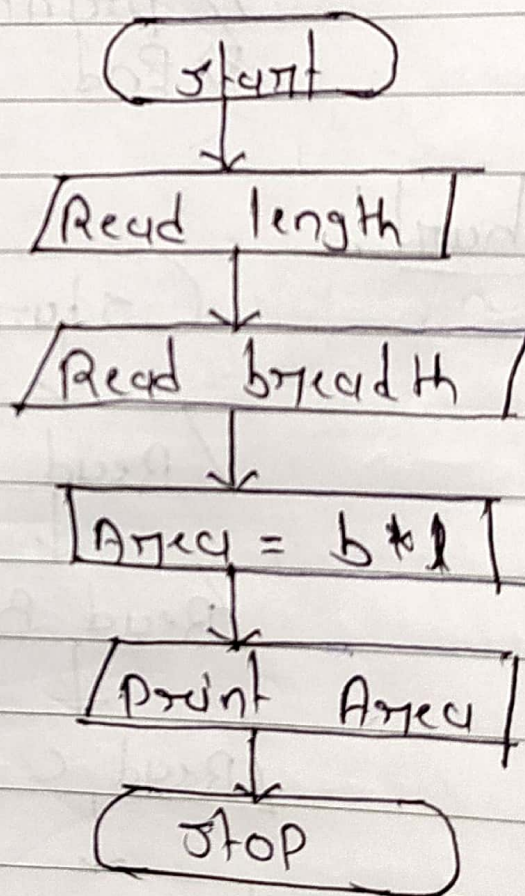 start
Read length
Read breadth
Area = b * l
print Area
stop